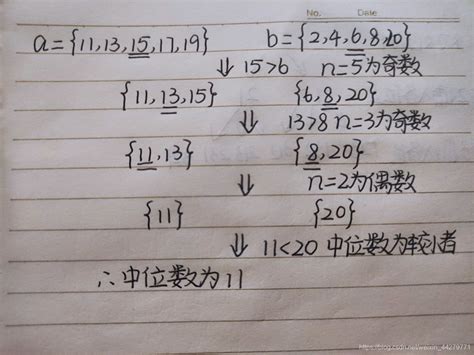 No.    Date
a={11,13,15,17,19}  b={2,4,6,8,20}
⇓ 15>6  n=5为奇数
{11,13,15}  {6,8,20}
⇓ 13>8 n=3为奇数
{11,13}  {8,20}
⇓ n=2为偶数
{11}  {20}
⇓ 11<20 中位数为较小者
∴中位数为11